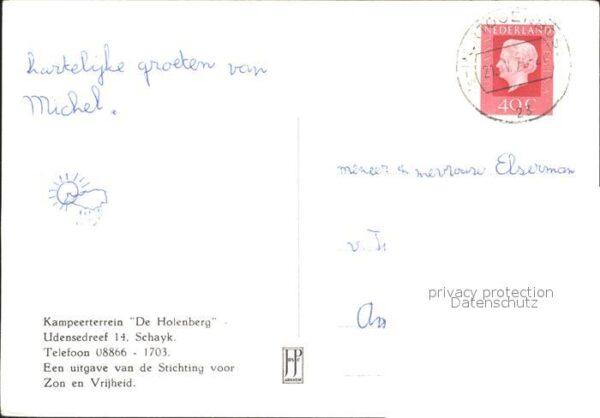 hartelijke groeten van
Michel.
NEDERLAND
40 c
meneer & mevrouw Elserman
privacy protection
Datenschutz
Kampeerterrein "De Holenberg" -
Udensedreef 14, Schayk.
Telefoon 08866 - 1703.
Een uitgave van de Stichting voor
Zon en Vrijheid.